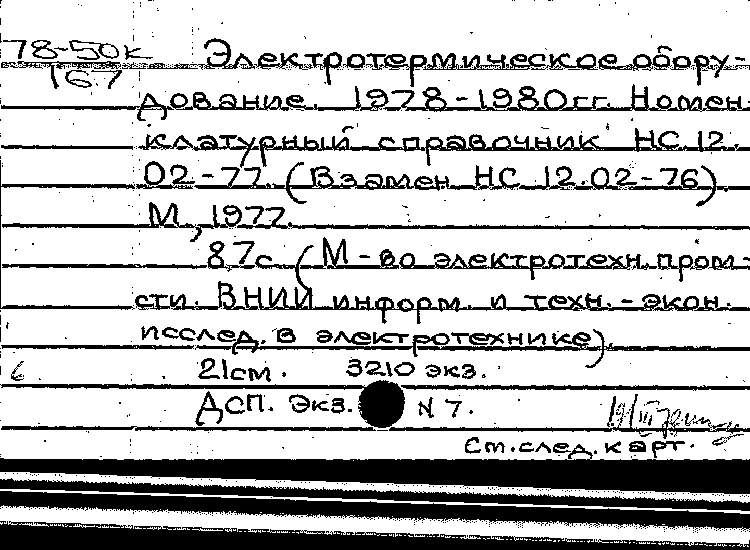 78-50к Электротермическое обору-
167
дование. 1978-1980гг. Номен-
клатурный справочник НС 12.
02-77. (Взамен НС 12.02-76).
М., 1977.
87с. (М-во электротехн. пром-
сти. ВНИИ информ. и техн.-экон.
исслед. в электротехнике).
21см. 3210 экз.
6
ДСП. Экз. N 7.
См. след. карт.